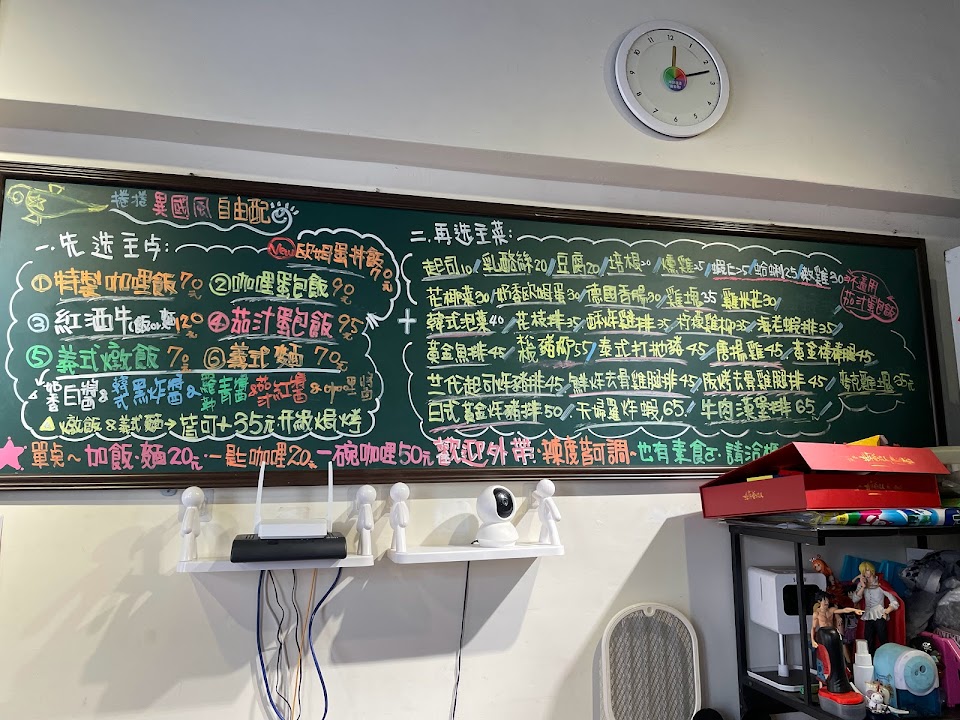 捲捲異國風自由配
一.先选主点:
New 歐姆蛋丼飯90元
①特製咖哩飯70元 ②咖哩蛋包飯90元
③紅酒牛(飯or麵)120元 ④茄汁蛋包飯95元
⑤義式燉飯70元 ⑥義式麵70元
白醬&韓式黑炸醬&青醬&茄紅醬&咖哩醬
燉飯&義式麵→皆可+35元升級焗烤
+
二.再选主菜:
起司10 乳酪絲20 豆腐20 培根20 燻雞25 蝦仁25 蛤蜊25 軟雞30
花椰菜30 奶香歐姆蛋30 德國香腸30 雞塊35 雞米花30
不適用茄汁蛋包飯
韓式泡菜40 花枝排35 酥炸雞排35 檸檬雞柳35 海老蝦排35
黃金魚排45 豬排55 泰式打拋豬45 唐揚雞45 黃金棒棒腿45
芝代起司炸豬排45 鮮炸去骨雞腿排45 板烤去骨雞腿排45 35元
日式黃金炸豬排50 天婦羅炸蝦65 牛肉漢堡排65
單点~加飯.麵20元.一匙咖哩20元 一碗咖哩50元 歡迎外帶.辣度皆可調~也有素食.請洽
12 1 2 3 4 5 6 7 8 9 10 11